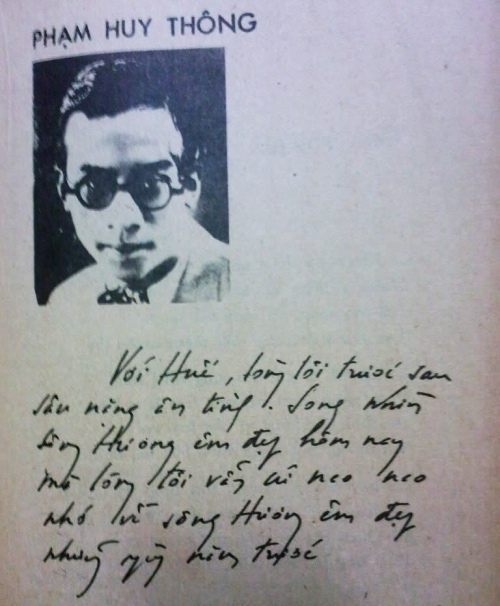 PHẠM HUY THÔNG
Với Huế, lòng tôi trước sau
sâu nặng ân tình. Song nhìn
sông Hương êm đẹp hôm nay
mà lòng tôi vẫn cứ neo neo
nhớ về sông Hương êm đẹp
những ngày năm trước